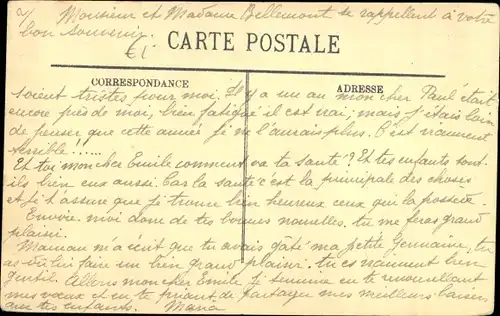 2/ Monsieur et Madame Bellemont se rappellent à votre
bon souvenir.
€1
CARTE POSTALE
CORRESPONDANCE
ADRESSE
soient tristes pour moi. Il y a un an mon cher Paul était
encore près de moi, bien fatigué il est vrai, mais j'étais loin
de penser que cette année je ne l'aurais plus. C'est vraiment
terrible!!.....
Et toi mon cher Emile comment va ta santé? Et tes enfants sont-
ils bien eux aussi. Car la santé c'est la principale des choses
et je t'assure que je trouve bien heureux ceux qui la possède.
Envoie moi donc de tes bonnes nouvelles. tu me feras grand
plaisir.
Maman m'a écrit que tu avais gâté ma petite Germaine, tu
as dû lui faire un bien grand plaisir. tu es vraiment bien
gentil. Allons mon cher Emile je termine en te renouvellant
mes vœux et en te priant de partager mes meilleurs baisers
avec tes enfants. Maria